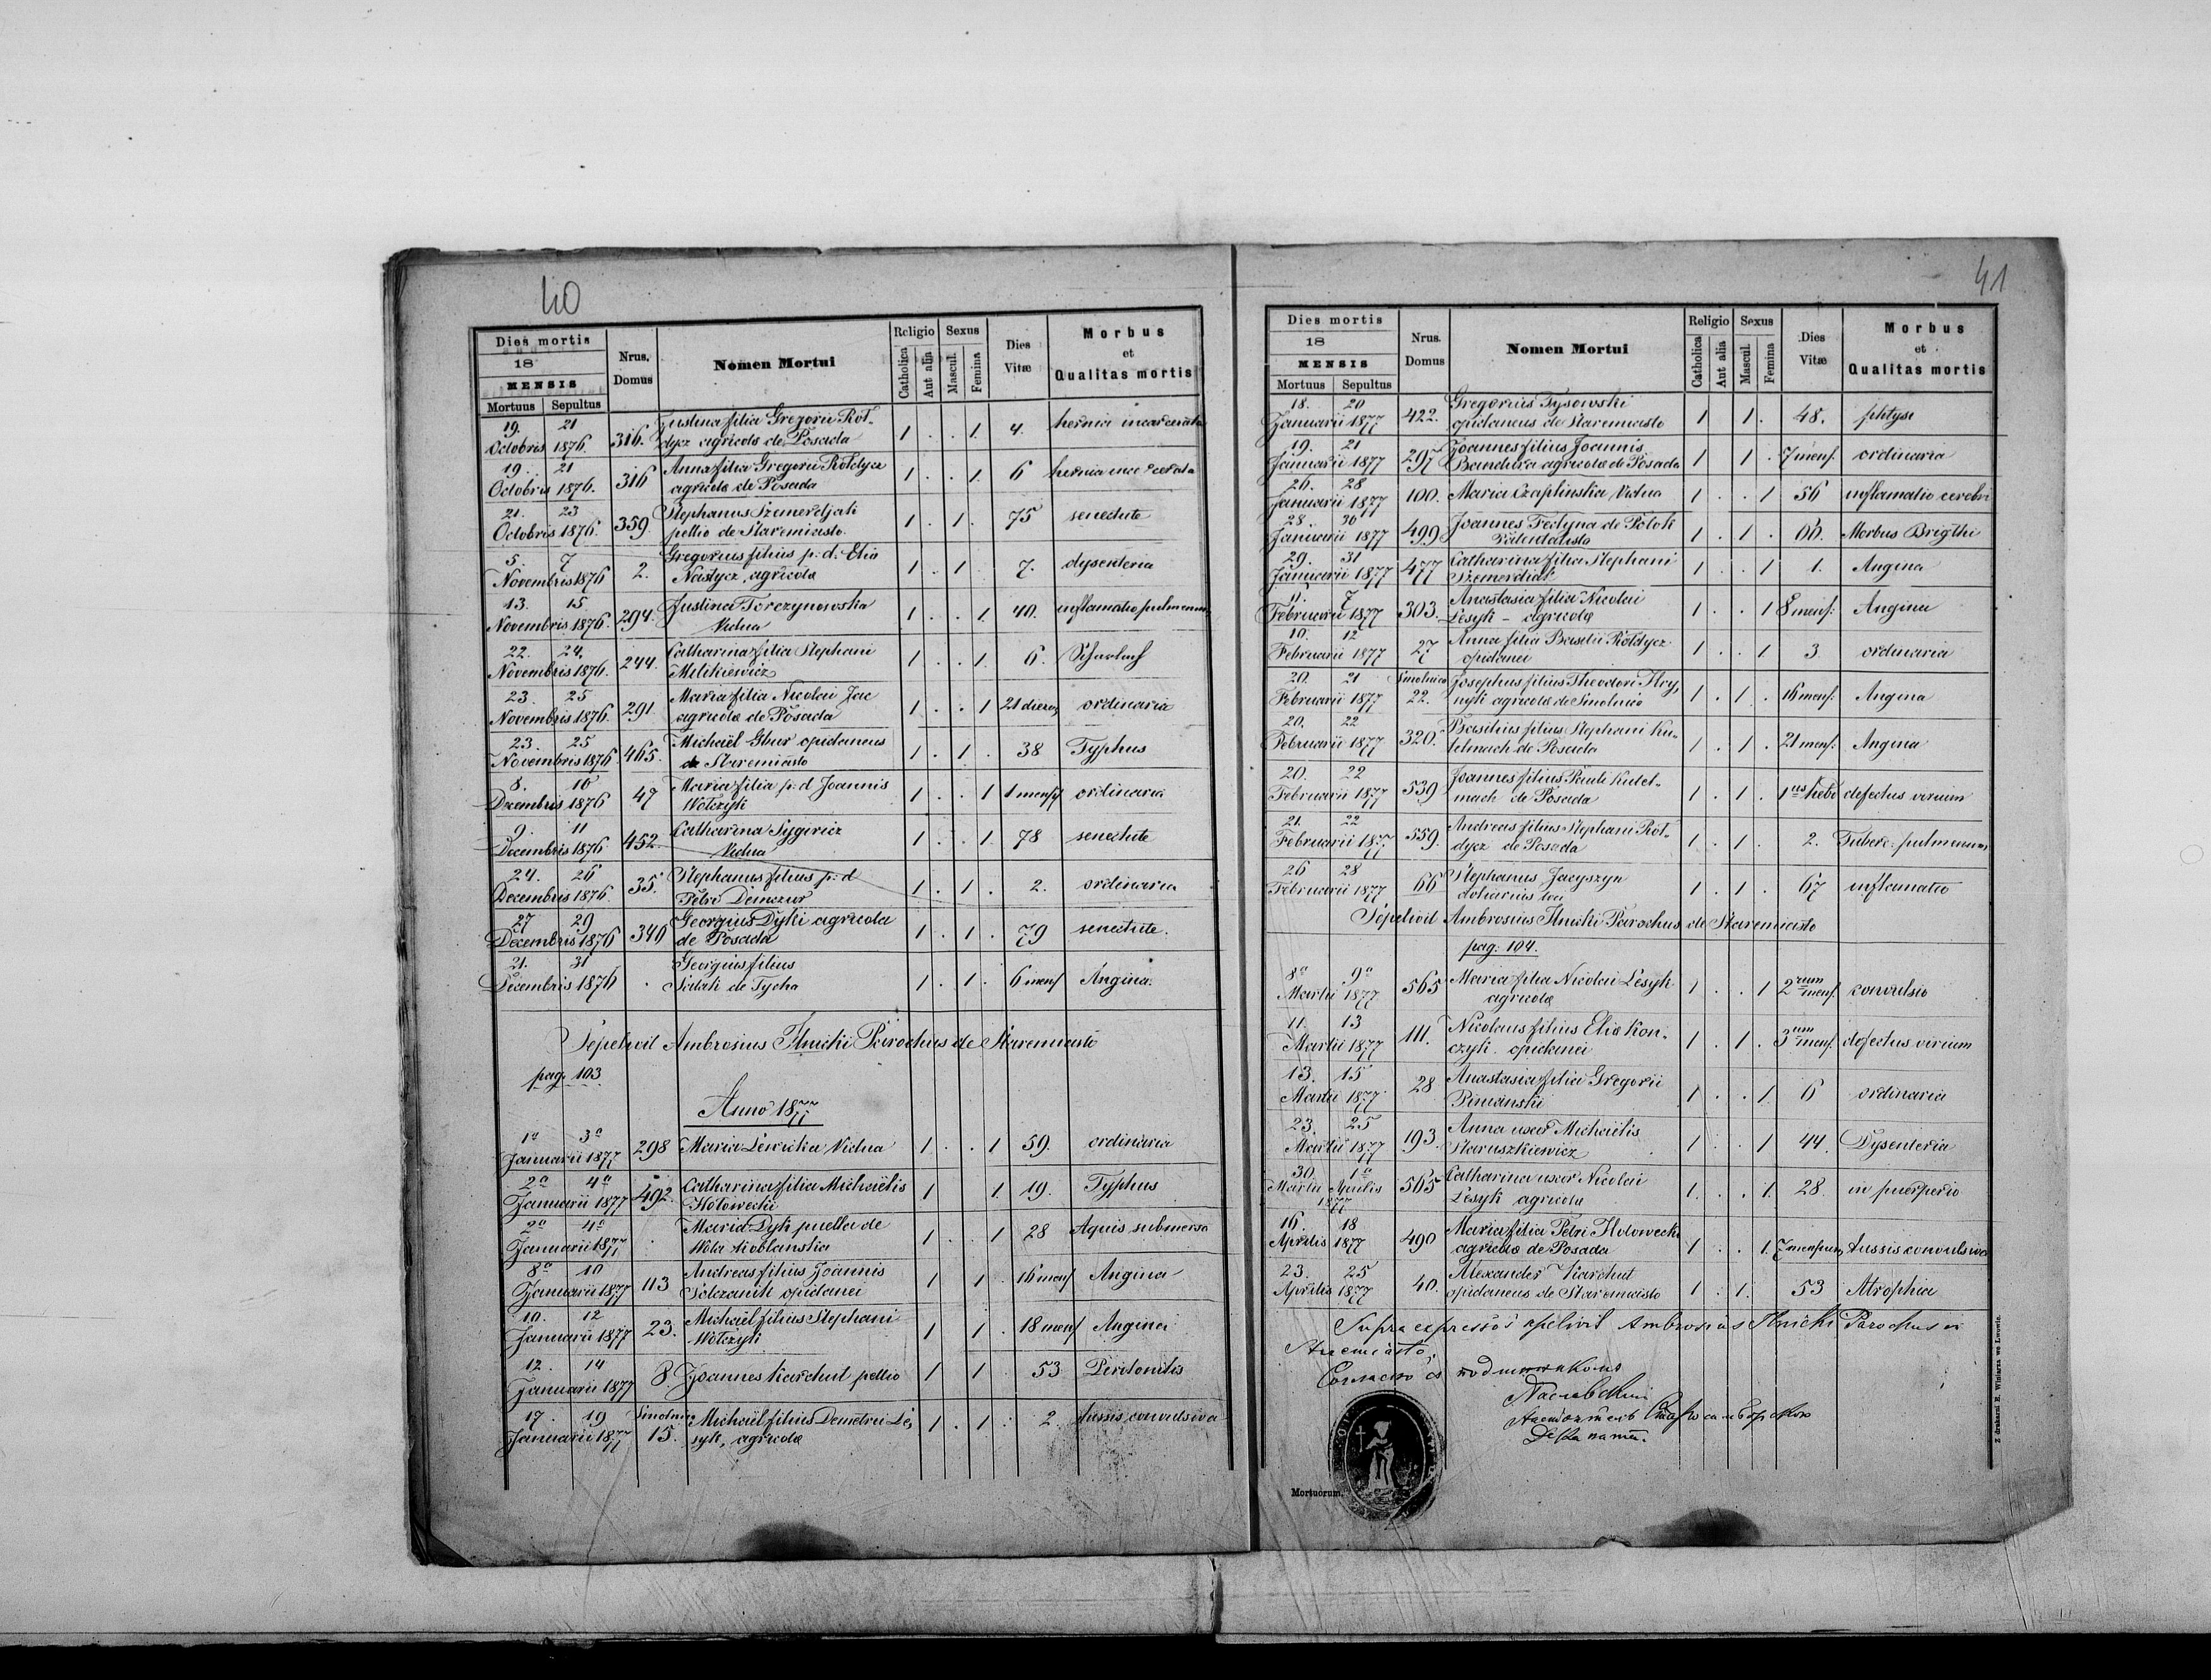 40
Dies mortis
18
MENSIS
Mortuus Sepultus
Nrus. Domus
Nomen Mortui
Religio
Catholica
Aut alia
Sexus
Mascul.
Femina
Dies Vitæ
Morbus et Qualitas mortis
19. 21 Octobris 1876. 316. Justina filia Gregorii Rot-
dycz agricola de Posada 1 . . 1. 4. hernia incarcerata
19. 21 Octobris 1876. 316 Anna filia Gregorii Rotdycz
agricola de Posada 1 . . 1. 6 hernia incarcerata
21. 23 Octobris 1876. 359. Stephanus Szmerdjak
pellio de Staremiasto. 1 . 1 . 75 senectute
5. 7 Novembris 1876 2. Gregorius filius p. d. Elia
Nastycz, agricola 1 . 1 7. dysenteria
13. 15 Novembris 1876. 294. Justina Torczynowska
Vidua 1 . . 1. 40. inflamatio pulmonum
22. 24. Novembris 1876. 244. Catharina filia Stephani
Milkiewicz 1 . . 1. 6.
23. 25 Novembris 1876 291 Maria filia Nicolai Jac
agricola de Posada 1 . . 1 21 dierum ordinaria
23. 25 Novembris 1876. 465. Michaël Gbur opidaneus
de Staremiasto 1 . 1 . 38 Typhus
8. 10 Decembris 1876 47 Maria filia p. d Joannis
Wolczyk 1 . . 1 1 mensis ordinaria
9. 11 Decembris 1876 452. Catharina Sygiricz
Vidua 1 . . 1. 78 senectute
24. 26 Decembris 1876. 35. Stephanus filius p. d
Petri Demczur 1 . 1 . 2. ordinaria
27 29 Decembris 1876 340 Georgius Dyki agricola
de Posada 1 . 1 . 79 senectute.
21. 31 Decembris 1876 . Georgius filius
Salak de Tycha 1 . 1 . 6 mens Angina.
Sepelivit Ambrosius Ilnicki Parochus de Staremiasto
pag. 103
Anno 1877
1a 3a Januarii 1877 298 Maria Lewicka Vidua 1 . . 1 59. ordinaria
2a 4a Januarii 1877 492. Catharina filia Michaëlis
Hołowecki 1 1. 19. Typhus
2a 4a Januarii 1877 . Maria Dyk puella de
Wola Koblanska 1 . . 1 28 Aquis submersa
8a 10 Januarii 1877 113 Andreas filius Joannis
Solczanik opidanei 1 1 . 16 mens Angina
10. 12 Januarii 1877 23. Michaël filius Stephani
Wolczyk 1 1 . 18 mens Angina
12. 14 Januarii 1877 8 Joannes Karchut pellio 1 1 . 53 Peritonitis
17. 19 Januarii 1877 Smolnica 15. Michaël filius Demetrii Le-
syk, agricola 1 . 1 . 2 tussis convulsiva
41
Dies mortis
18
MENSIS
Mortuus Sepultus
Nrus. Domus
Nomen Mortui
Religio
Catholica
Aut alia
Sexus
Mascul.
Femina
Dies Vitæ
Morbus et Qualitas mortis
18. 20 Januarii 1877 422. Gregorius Tysowski
opidaneus de Staremiasto 1 1 . 48. phtysi
19. 21 Januarii 1877 297 Joannes filius Joannis
Bandura agricola de Posada 1 1 . 7 mens. ordinaria
26. 28 Januarii 1877 100. Maria Czaplinska Vidua 1 . . 1 56 inflamatio cerebri
28. 30 Januarii 1877 499 Joannes Fedyna de Potok
1 . 1 . 60. Morbus Brigthi
29. 31 Januarii 1877 477 Catharina filia Stephani
Szemerdiak 1 . . 1 1. Angina
7 Februarii 1877 303. Anastasia filia Nicolai
Lesyk - agricola 1 . . 1 8 mens: Angina
10. 12 Februarii 1877 27 Anna filia Basilii Rotdycz
opidanei 1 . . 1 3 ordinaria
20. 21 Februarii 1877 Smolnica 22. Josephus filius Theodori
agricola de Smolnica 1 . 1 . 16 mens. Angina
20. 22 Februarii 1877 320. Basilius filius Stephani Ku-
telmach de Posada 1 . 1 . 21 mens. Angina
20. 22 Februarii 1877 539 Joannes filius Pauli Kutel-
mach de Posada 1 . 1 . defectus virium
21. 22 Februarii 1877 559. Andreas filius Stephani Rot-
dycz de Posada 1 . 1 . 2. Tuberc: pulmonum
26 28 Februarii 1877 66 Stephanus Jacyszyn
1 . 1 . 67 inflamatio
Sepelivit Ambrosius Ilnicki Parochus de Staremiasto
pag: 104.
8a 9a Martii 1877 565 Maria filia Nicolai Lesyk
agricola 1 . . 1 2 mens. convulsio
11. 13 Martii 1877 111. Nicolaus filius Eliæ Kon-
czyk opidanei 1 . 1 . 3 mens. defectus virium
13. 15 Martii 1877 28 Anastasia filia Gregorii
1 . . 1. 6 ordinaria
23. 25 Martii 1877 193. Anna uxor Michaëlis
Staruszkiewicz 1 . . 1 44. Dysenteria
30. 1a Martii Aprilis 1877 565 Catharina uxor Nicolai
Lesyk agricola 1 . . 1. 28. in puerperio
16. 18 Aprilis 1877 490 Maria filia Petri Holowecki
agricola de Posada 1 . . 1. 7 mensium tussis convulsiva
23. 25 Aprilis 1877 40. Alexander Karchut
opidaneus de Staremiasto 1 . 1. 53 Atrophia
Supra expressos sepelivit Ambrosius Ilnicki Parochus in
Staremiasto,
Mortuorum.
Z drukarni E. Winiarza we Lwowie.